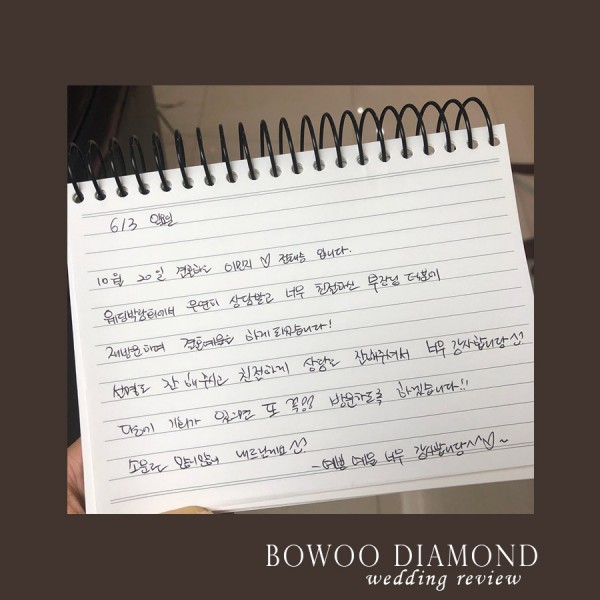 6/3 일요일
10월 20일 결혼하는 이민지 ♡ 전태승 입니다.
웨딩박람회에서 우연히 상담받고 너무 친절하신 부장님 덕분에
재방문하여 결혼예물을 하게 되었습니다!
설명도 잘 해주시고 친절하게 상담도 잘해주셔서 너무 감사합니다
다음에 기회가 있으면 또 꼭꼭 방문하도록 하겠습니다!!
소문도 많이많이 내드릴게요
-예쁜 예물 너무 감사합니당^^♡~
BOWOO DIAMOND
wedding review